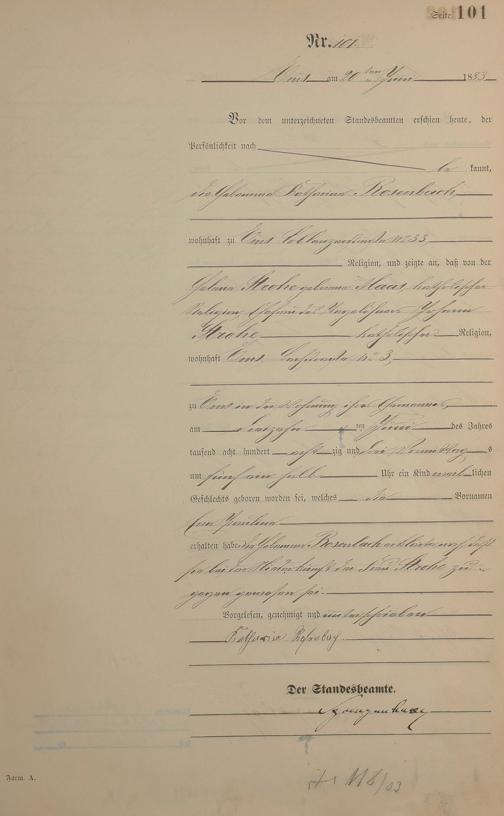 Seite 101
Nr. 101.
Ems am 20ten Juni 1883
Vor dem unterzeichneten Standesbeamten erschien heute, der
Persönlichkeit nach
be kannt,
die Hebamme Katharina Rosenbach,
wohnhaft zu Ems Coblenzerstraße No 33,
Religion, und zeigte an, daß von der
Strohe geborene Haas, katholischer
Religion, Ehefrau des Tagelöhners Johann
Strohe, katholischer Religion,
wohnhaft Ems, No 3,
zu Ems in der Wohnung ihres Ehemannes,
am ten Juni des Jahres
tausend acht hundert acht zig und drei Vormittags
um fünf ein halb Uhr ein Kind weib lichen
Geschlechts geboren worden sei, welches die Vornamen
Paulina
erhalten habe. die Hebamme Rosenbach erklärte noch daß
sie bei der Niederkunft der Frau Strohe zu-
gegen gewesen sei.
Vorgelesen, genehmigt und unterschrieben
Katharina
Der Standesbeamte.
Form. A.